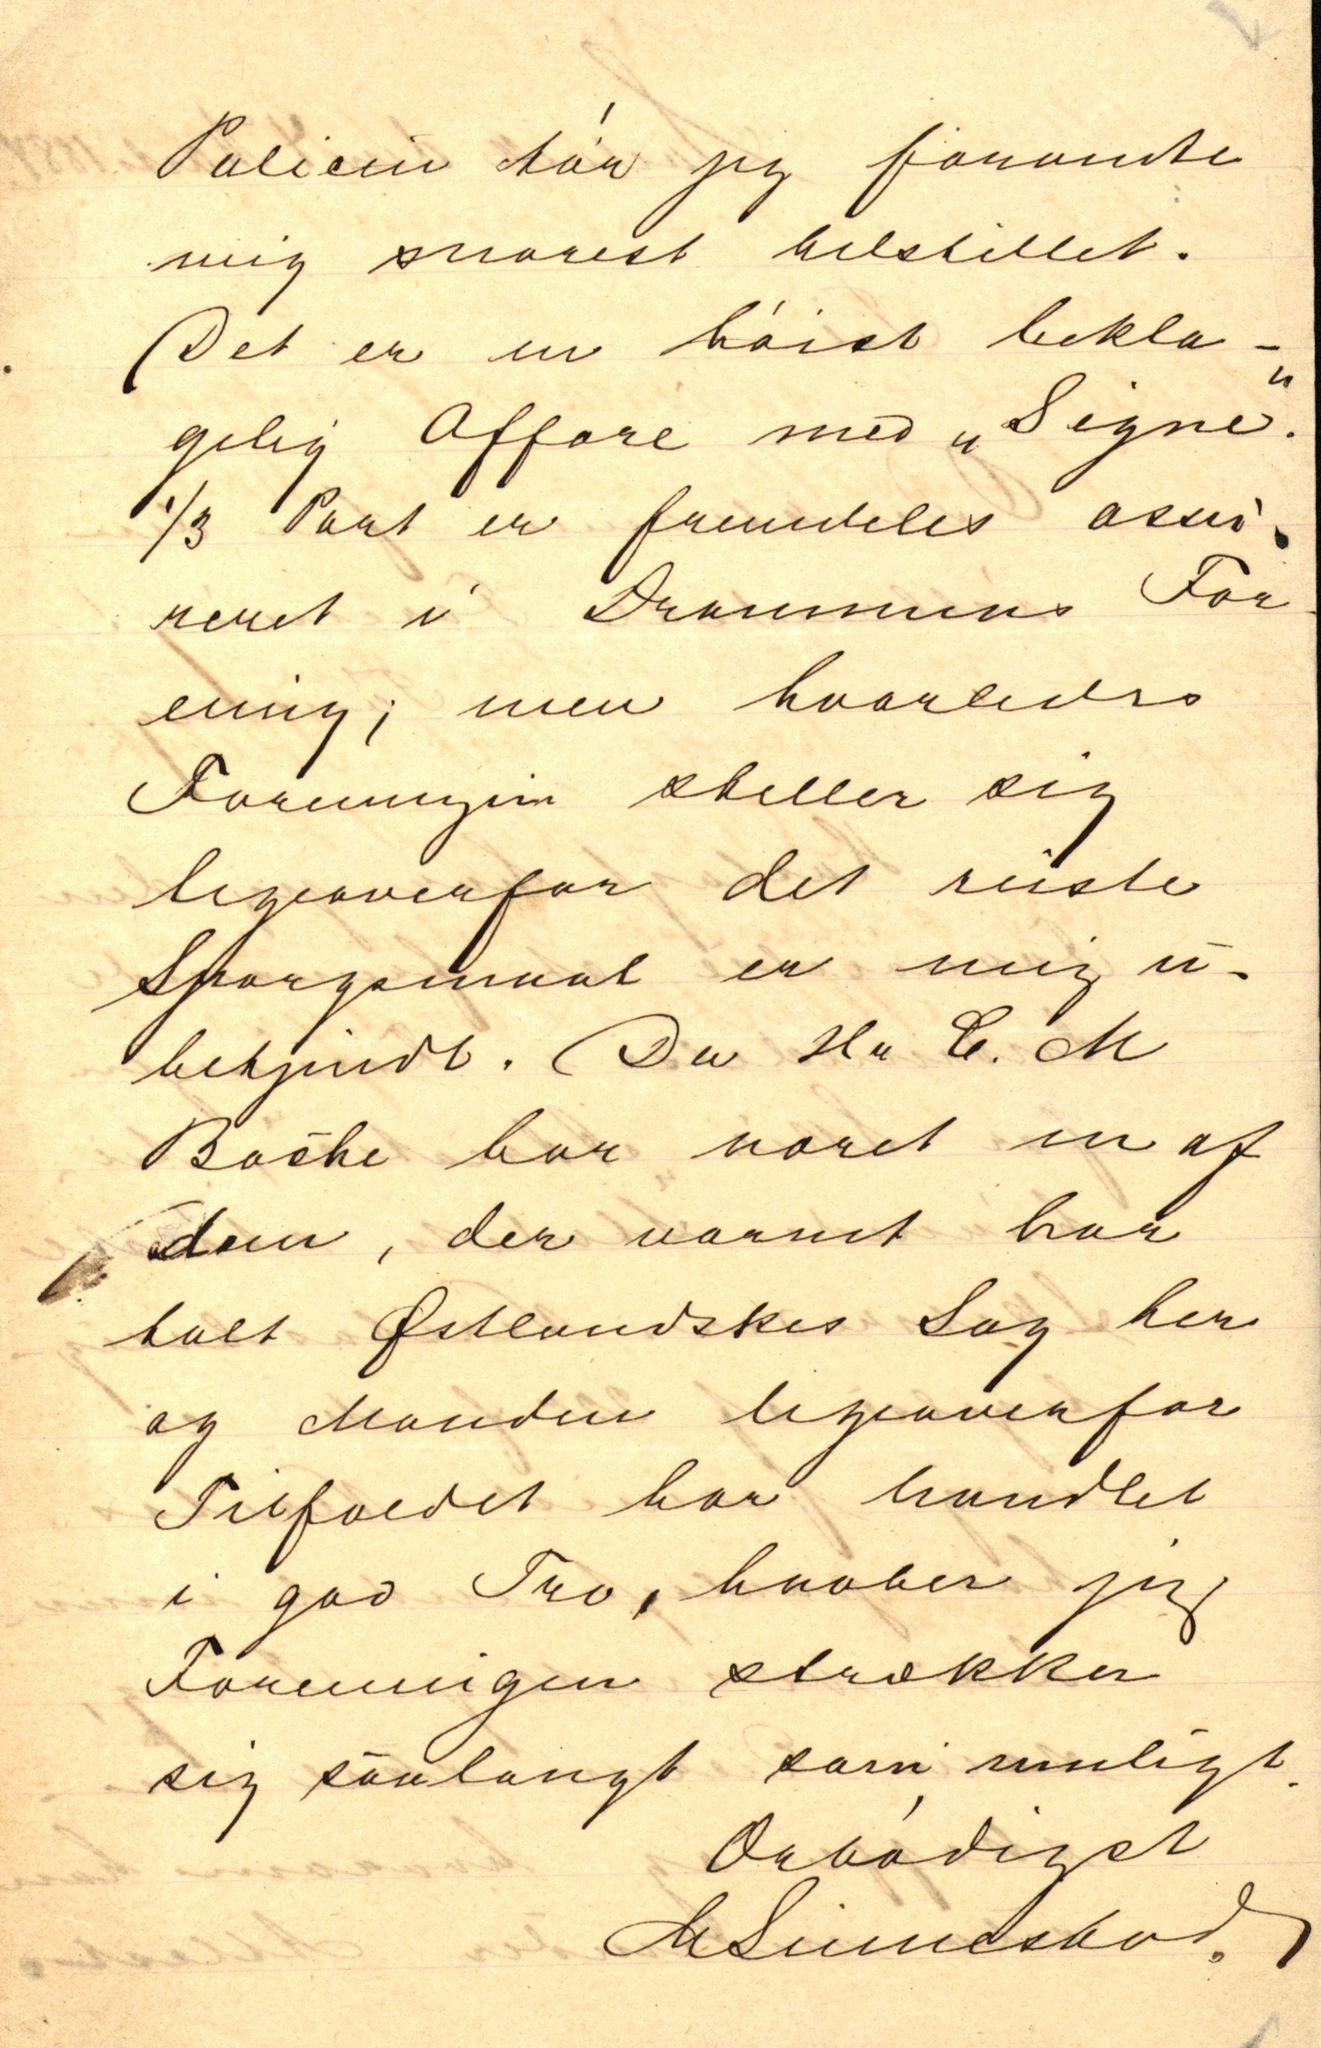 Policen tør jeg forvente
mig snarest tilstillet.
Det er en høist bekla-
gelig Affære med „Signe".
1/3 Part er fremdeles assu-
reret i Drammens For-
ening; men hvorledes
Foreningen stiller sig
ligeoverfor det reiste
Spørgsmaal er mig u-
bekjendt. Da Hr C. M
Bache har været en af
dem, der varmt har
talt Østlandskes Sag her
og Manden ligeoverfor
Tilfældet har handlet
i god Tro, haaber jeg
Foreningen strækker
sig saalangt som muligt.
Ærbødigst